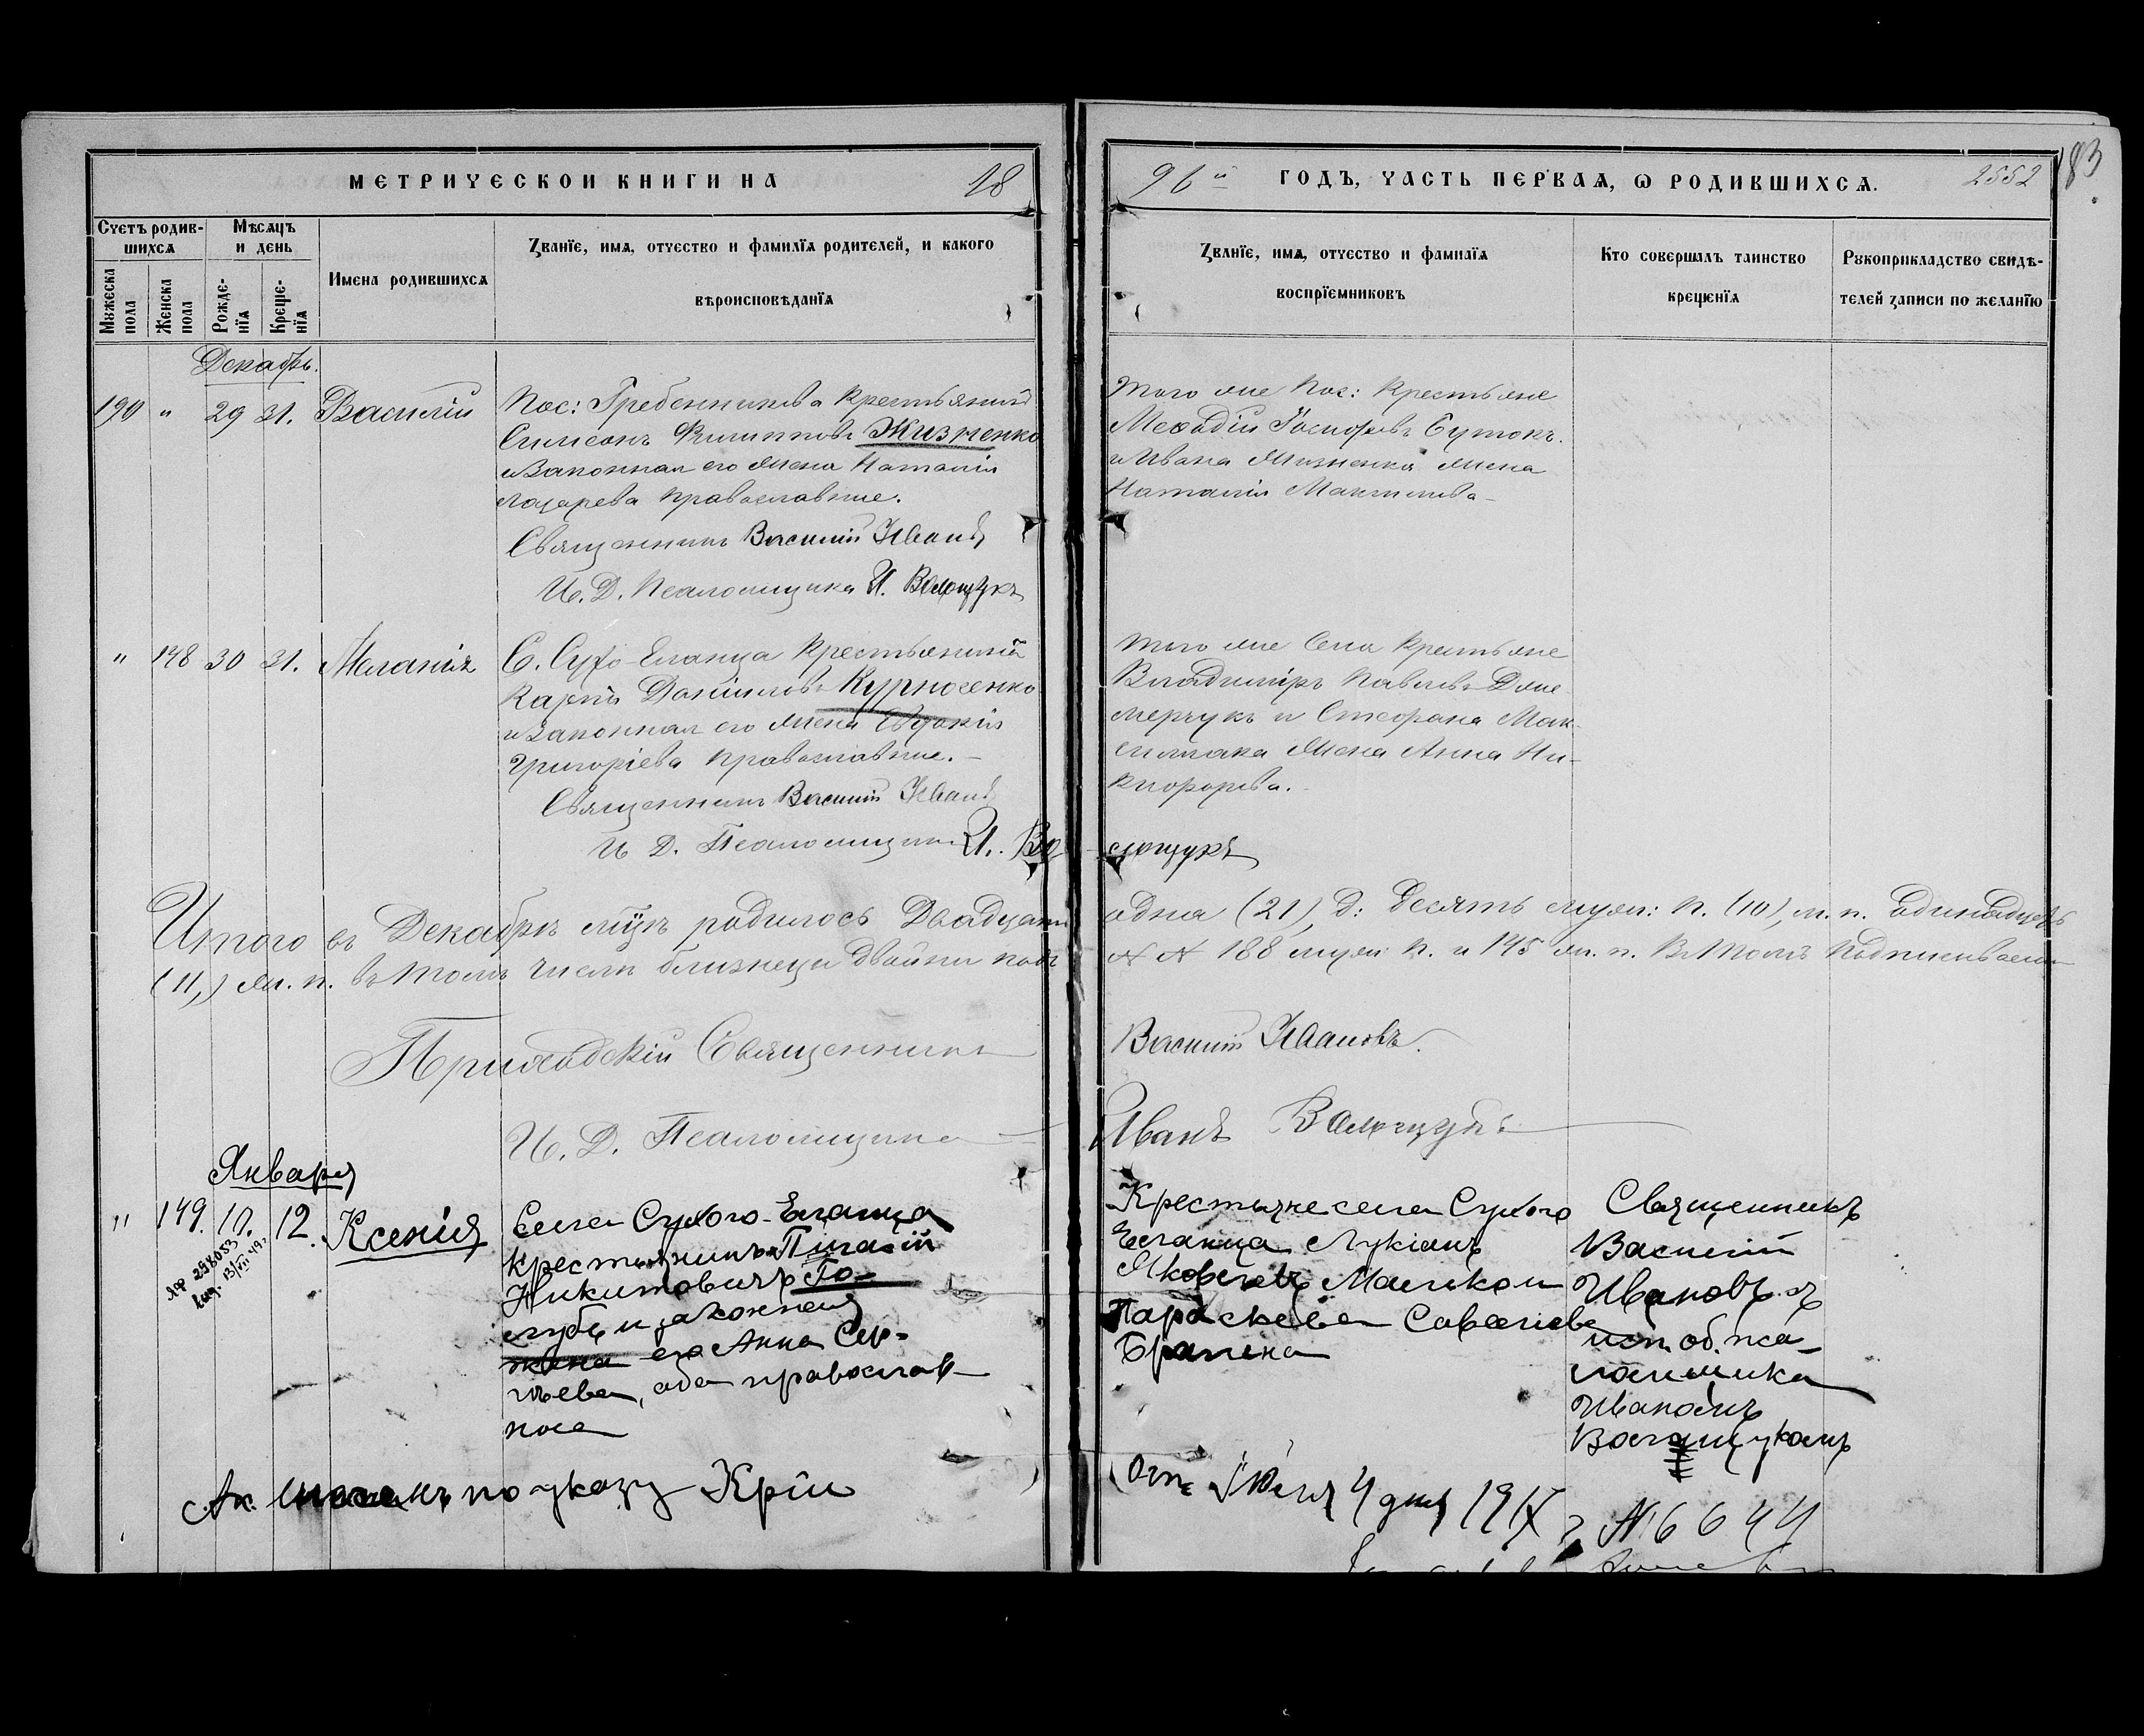 МЕТРИЧЕСКОЙ КНИГИ НА 18
96й ГОДЪ, ЧАСТЬ ПЕРВАЯ, Ѡ РОДИВШИХСЯ. 2552
183
Счетъ родив-
шихся
Мꙋжеска пола
Женска пола
Мѣсяцъ
и день
Рожде-
нїя
Креще-
нїя
Имена родившихся
Званїе, имя, отчество и фамилїя родителей, и какого
вѣроисповѣданїя
Званїе, имя, отчество и фамилїя
воспрїемниковъ
Кто совершалъ таинство
крещенїя
Рꙋкоприкладство свидѣ-
телей записи по желанїю
Декабрь.
190 " 29 31. Василій
Пос: Гребенникова Крестьянинъ
Симеонъ Филипповъ Жизненко
и Законная его жена Наталія
Лазарева православные.
Священникъ Василій Ивановъ
И. Д. Псаломщика И. Волощукъ
Того же Пос: Крестьяне
Меѳодій Іосифовъ Бутокъ
и Ивана Жизненка жена
Наталія Максимова
" 148 30 31. Меланія
С. Сухо-Еланца Крестьянинъ
Карпъ Даніиловъ Курносенко
и Законная его жена Евдокія
Григоріева православные.
Священникъ Василій Ивановъ
И. Д. Псаломщика И. Во
лощукъ
Того же Села Крестьяне
Владиміръ Павловъ
и Стефана Мак-
жена Анна Ни-
кифорова.
Итого въ Декабрѣ мѣс родилось Двадцать одна (21) Д: Десять муж: п. (10), ж. п. Одинадцать
(11,) ж. п. въ томъ числѣ близнецы двойни подъ № № 188 муж п. и 145 ж. п. Въ томъ подписываемся
Приходскій Священникъ Василій Ивановъ.
И. Д. Псаломщика Иванъ Волощукъ
Января
" 149. 10. 12. Ксенія
258053
13/VII 49 г
Села Сухого-Еланца
крестьянинъ Пигасій
Никитовичъ Го-
лубъ и законная
жена его Анна Сер-
гѣева, оба православ-
ные
Крестьяне села Сухого
Еланца Лукіанъ
Яковлевъ и
Параскева Савелиева
Священникъ
Василій
Ивановъ съ
исп. об. пса-
ломщика
Иваномъ
Волощукомъ
по указу
отъ Іюля 4 дня № 6644